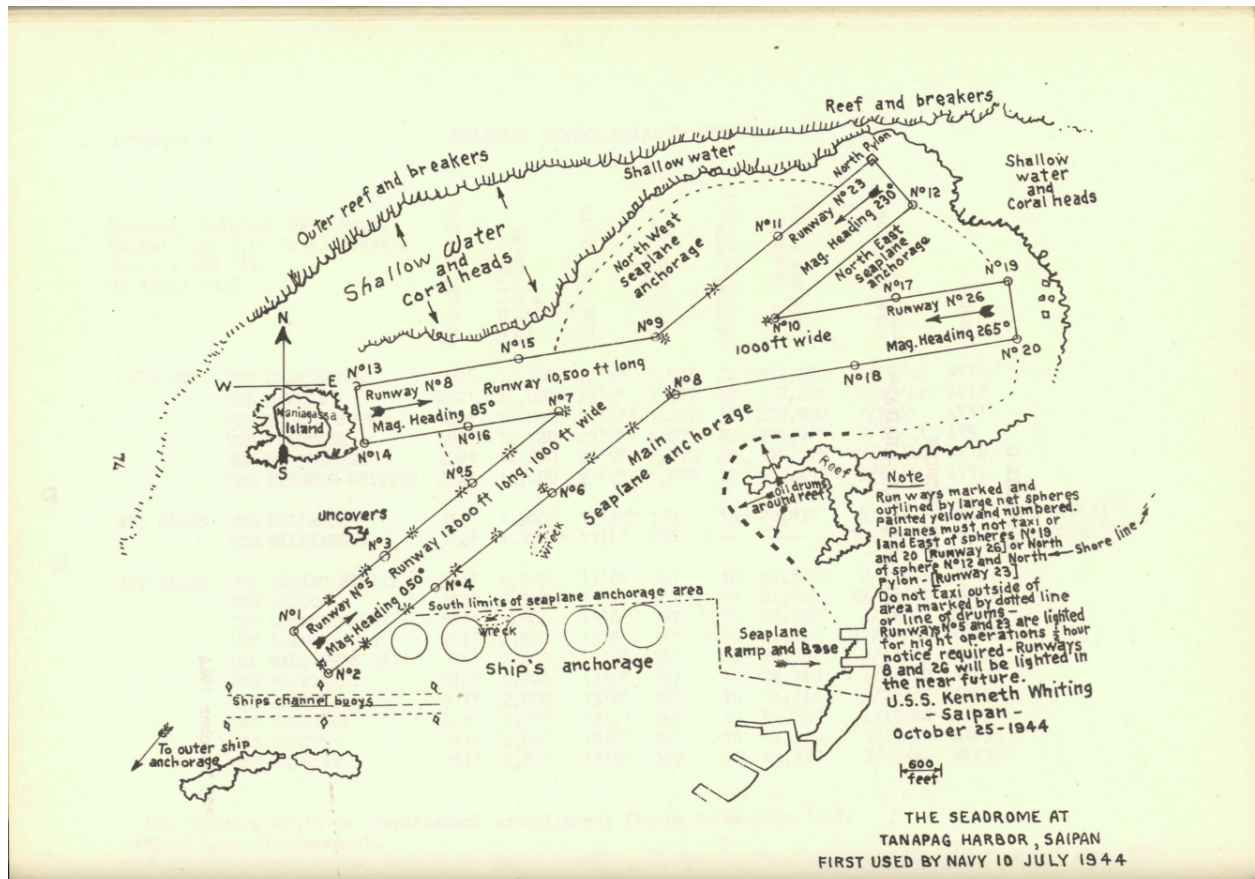 Reef and breakers
Outer reef and breakers
Shallow water
North Pylon
Shallow
water
and
Coral heads
Shallow Water
and
coral heads
North West
seaplane
anchorage
Nº11
Runway Nº23
Mag. Heading 230°
Nº12
North East
seaplane
anchorage
Nº19
Nº17
Runway Nº26
Mag. Heading 265°
Nº20
Nº10
1000 ft wide
Nº18
N
W
E
S
Maniagassa
Island
Nº13
Nº15
Nº9
Runway Nº8
Runway 10,500 ft long
Mag. Heading 85°
Nº7
Nº8
Nº14
Nº16
Nº5
Nº6
Main
Seaplane anchorage
uncovers
Nº3
Runway 12000 ft long, 1000 ft wide
wreck
Nº4
Nº1
Runway Nº5
Mag. Heading 050°
Nº2
South limits of seaplane anchorage area
wreck
Ship's anchorage
Ships channel buoys
To outer ship
anchorage
Reef
oil drums
around reef
Seaplane
Ramp and Base
Note
Run ways marked and
outlined by large net spheres
painted yellow and numbered.
Planes must not taxi or
land East of spheres Nº19
and 20 [Runway 26] or North
of sphere Nº12 and North
Pylon-[Runway 23]
Shore line
Do not taxi outside of
area marked by dotted line
or line of drums-
Runways Nº5 and 23 are lighted
for night operations ½ hour
notice required-Runways
8 and 26 will be lighted in
the near future.
U.S.S. Kenneth Whiting
- Saipan -
October 25-1944
600
feet
THE SEADROME AT
TANAPAG HARBOR, SAIPAN
FIRST USED BY NAVY 10 JULY 1944
74